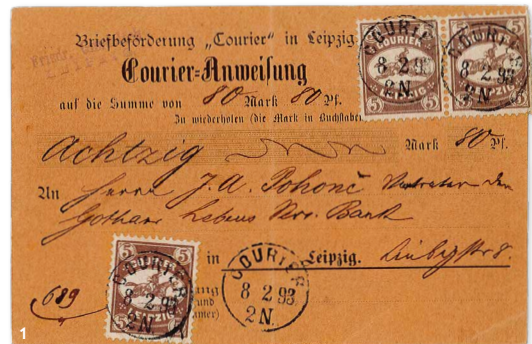 Briefbeförderung „Courier“ in Leipzig
Courier-Anweisung
auf die Summe von 80 Mark 80 Pf.
Zu wiederholen (die Mark in Buchstaben
Achtzig Mark 80 Pf.
An Herrn J. A. Pohonč Vertreter der
Gothaer Lebens Vers. Bank
in Leipzig.
689
COURIER
5 LEIPZIG 5
COURIER
8 2 93
2N.
COURIER
8 2 93
2N.
COURIER
8 2 93
2N.
COURIER
8 2 93
2N.
1